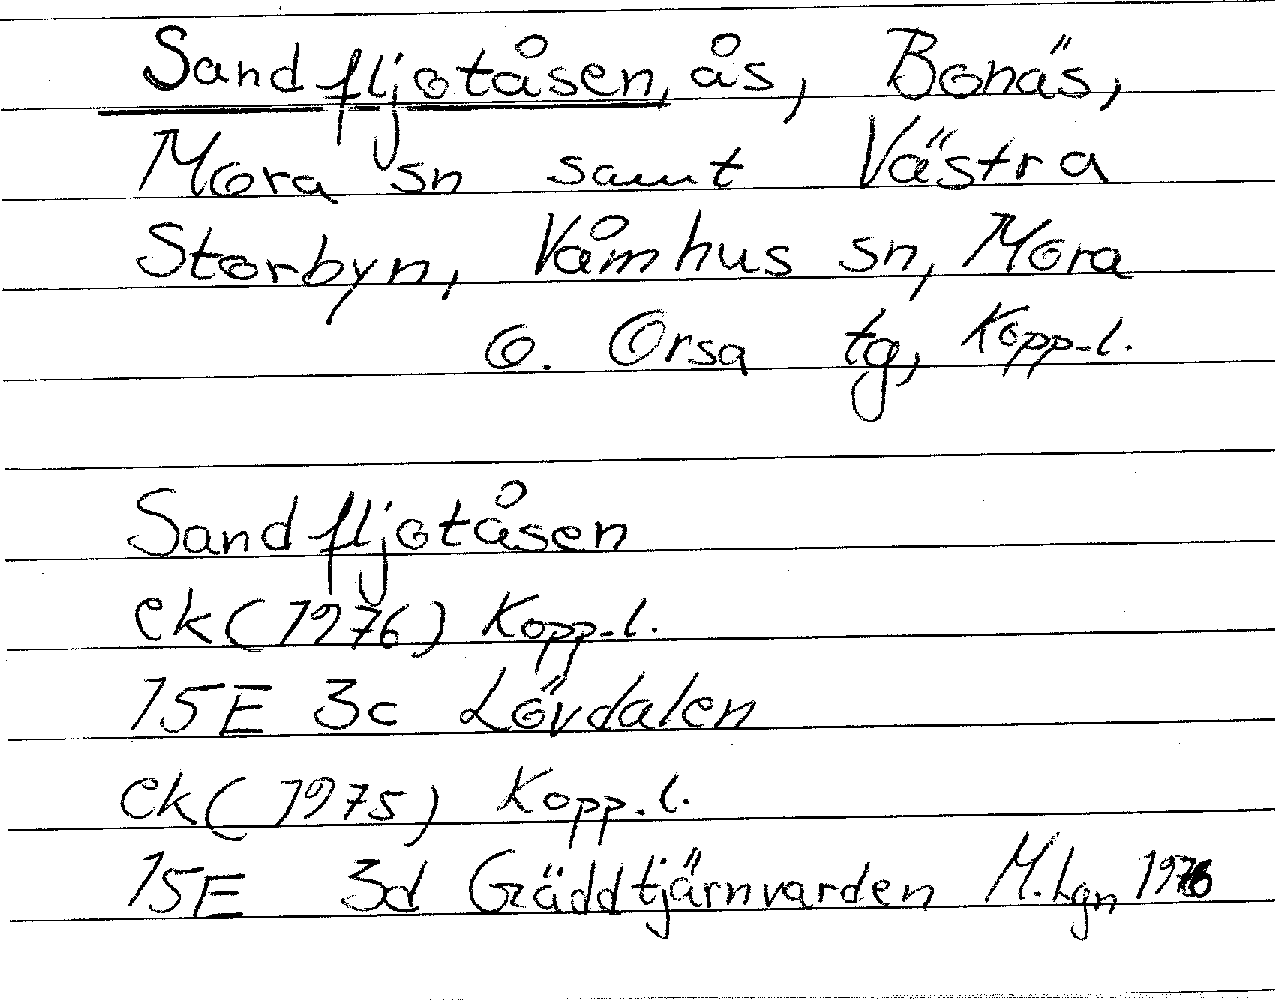 Sandfljotåsen, ås, Bonäs,
Mora sn samt Västra
Storbyn, Våmhus sn, Mora
o. Orsa tg, Kopp.l.
Sandfljotåsen
ek(1976) Kopp.l.
15E 3c Lövdalen
ek(1975) Kopp.l.
15E 3d Gäddtjärnvarden M.Lgn 1976